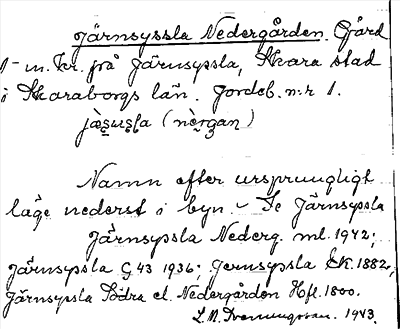 Järnsyssla Nedergården. Gård
1 m. kr. på Järnsyssla, Skara stad
i Skaraborgs län. Jordeb. n:r 1.
jæ̀sųsla (nèrgan)
Namn efter ursprungligt
läge nederst i byn. – Se Järnsyssla
Järnsyssla Nederg. ml. 1942;
Järnsyssla G 43 1936; Jernsyssla EK. 1882,
Järnsyssla Södra el. Nedergården Hft. 1800.
1943.